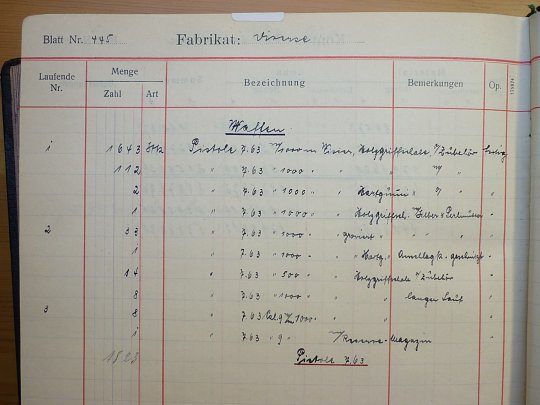 Blatt Nr. 445 Fabrikat: Diverse
Laufende Nr. Menge Bezeichnung Bemerkungen Op.
Zahl Art
Waffen.
1 1643 Stk Pistole 7.63 m/1000 m Visier, Holzgriffschale, m/Zubehör
112 " " 7.63 " 1000 " " " "
2 " " 7.63 " 1000 " " Hartgummi "
1 " " 7.63 " 1000 " " Holzgriffsch. m/Silber & Perlmutter "
2 33 " " 7.63 " 1000 " graviert " "
1 " " 7.63 " 1000 " " Hartg. " Anschlag k. geschnitzt "
14 " " 7.63 " 500 " " Holzgriffschale m/Zubehör "
8 " " 7.63 " 1000 " " langer Lauf "
3 8 " " 7.63 Cal. 9 m/1000 "
1 " 7.63 " 9 " m/Reserve-Magazin "
1823 Pistole 7.63